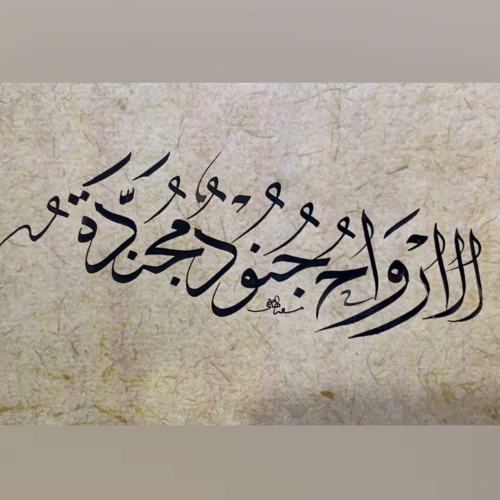 الارْوَاحُ جُنُوْدُ مُجَنَّدَة